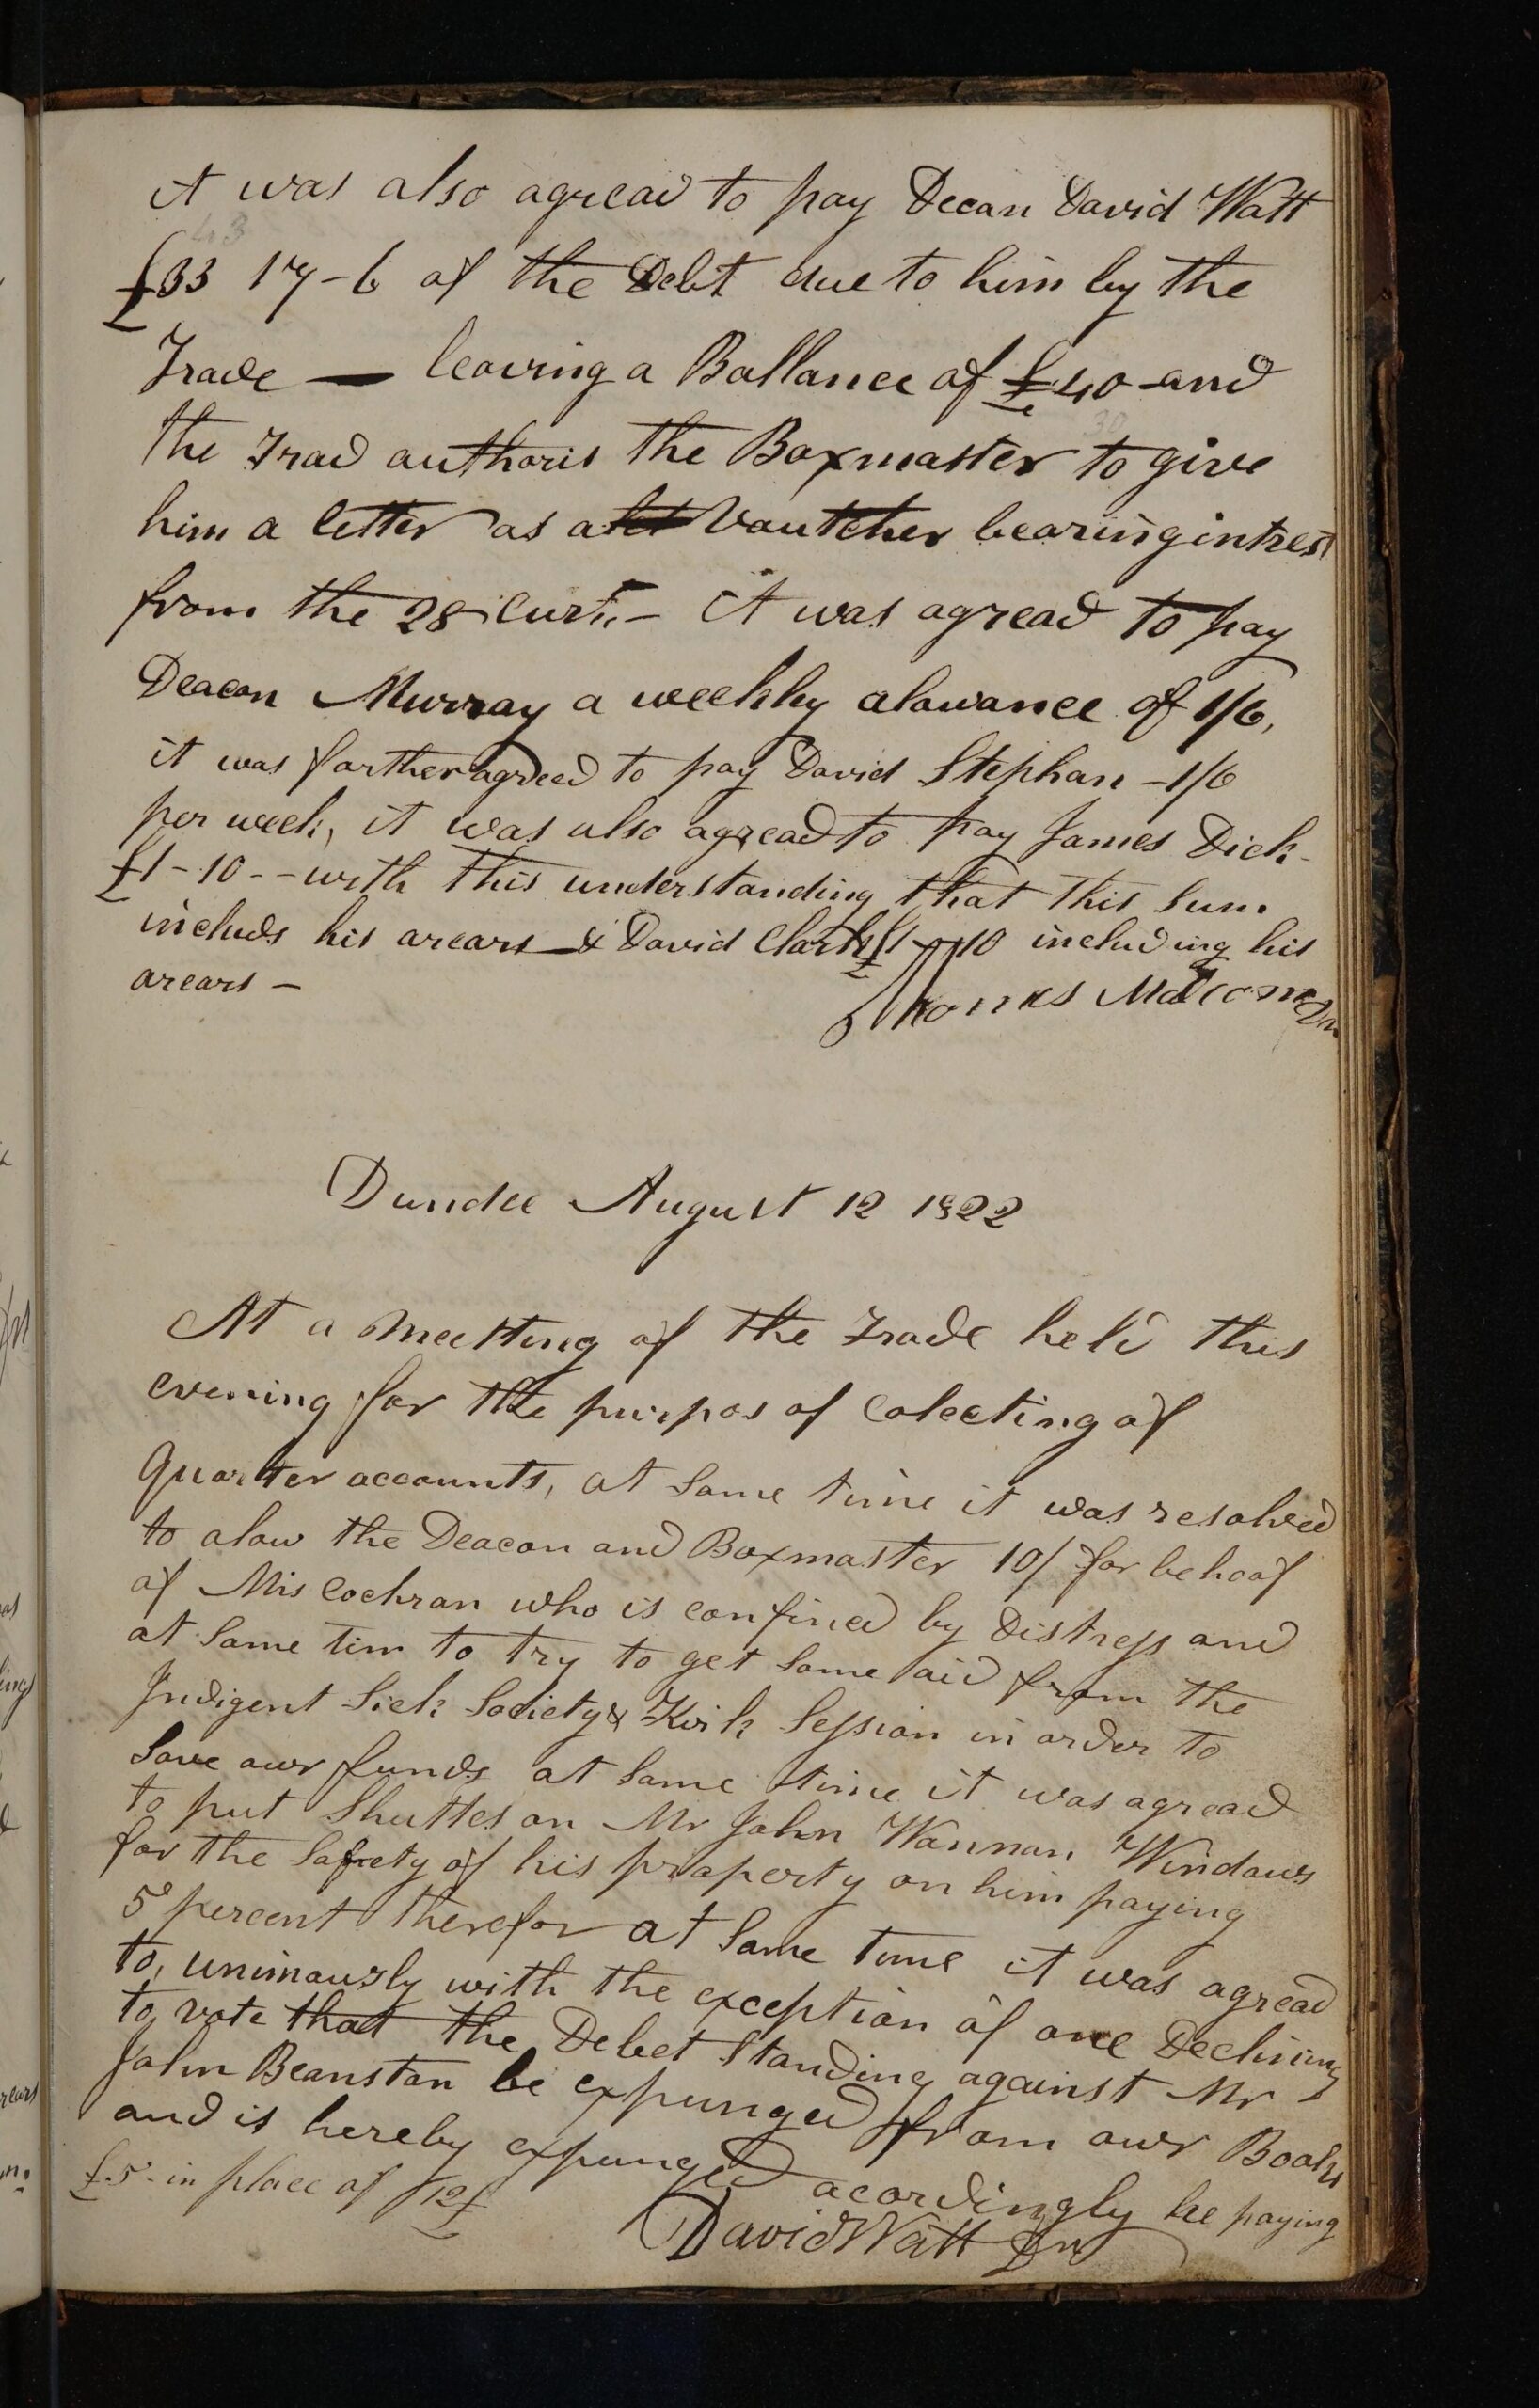 it was also agread to pay Decan David Watt
43
£33 17-6 of the Debt due to him by the
Trade — leaving a Ballance of £40 and
30
the Trad authoris the Boxmaster to give
him a letter as a let Vautcher bearing intrest
from the 28 Curt. - it was agread to pay
Deacon Murray a weekly alowance of 1/6,
it was farther agreed to pay David Stephan - 1/6
per week, it was also agread to pay James Dick -
£1-10-- with this understanding that this sum
includs his arears - & David Clark £1-10 including his
arears -
Thomas Malcom Dn
Dundee August 12 1822
At a meetting of the trade held this
evening for the purpos of Colecting of
Quarter accounts, at same time it was resolved
to alow the Deacon and Boxmaster 10/ for behoof
of Mis Cochran who is confined by Distress and
at same tim to try to get some aid from the
Indigent Sick Sociiety & Kirk Session in order to
save awr funds at same time it was agread
to put Shuttes on Mr John Wannan Windows
for the Safety of his praperty on him paying
5 percent therefor at same time it was agread
to, unimously with the exception of one Declining
to vote that the Debet standing against Mr
John Beanston be expunged from awr Books
and is hereby expunged acordingly he paying
£5 - in place of 12£
David Watt Dn